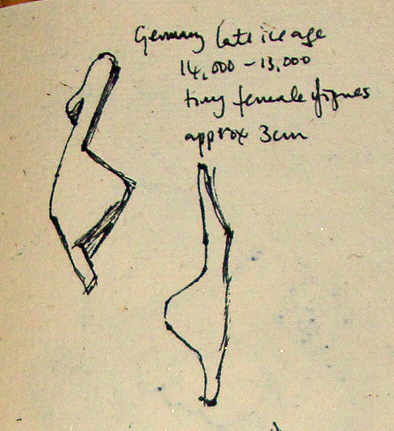 Germany late ice age
14,000 - 13,000
tiny female figures
approx 3cm